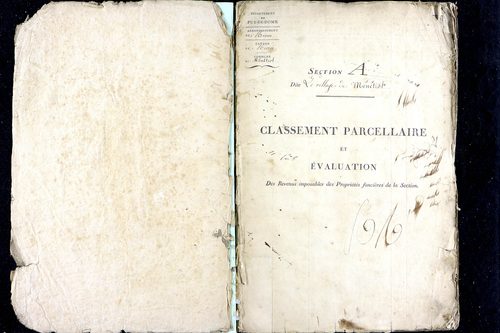 DÉPARTEMENT
DU
PUY-DE-DÔME
ARRONDISSEMENT
de Riom
CANTON
de Riom
COMMUNE
de Ménétrol
SECTION A
Dite Le village de Ménétrol
CLASSEMENT PARCELLAIRE
ET
ÉVALUATION
Des Revenus imposables des Propriétés foncières de la Section.